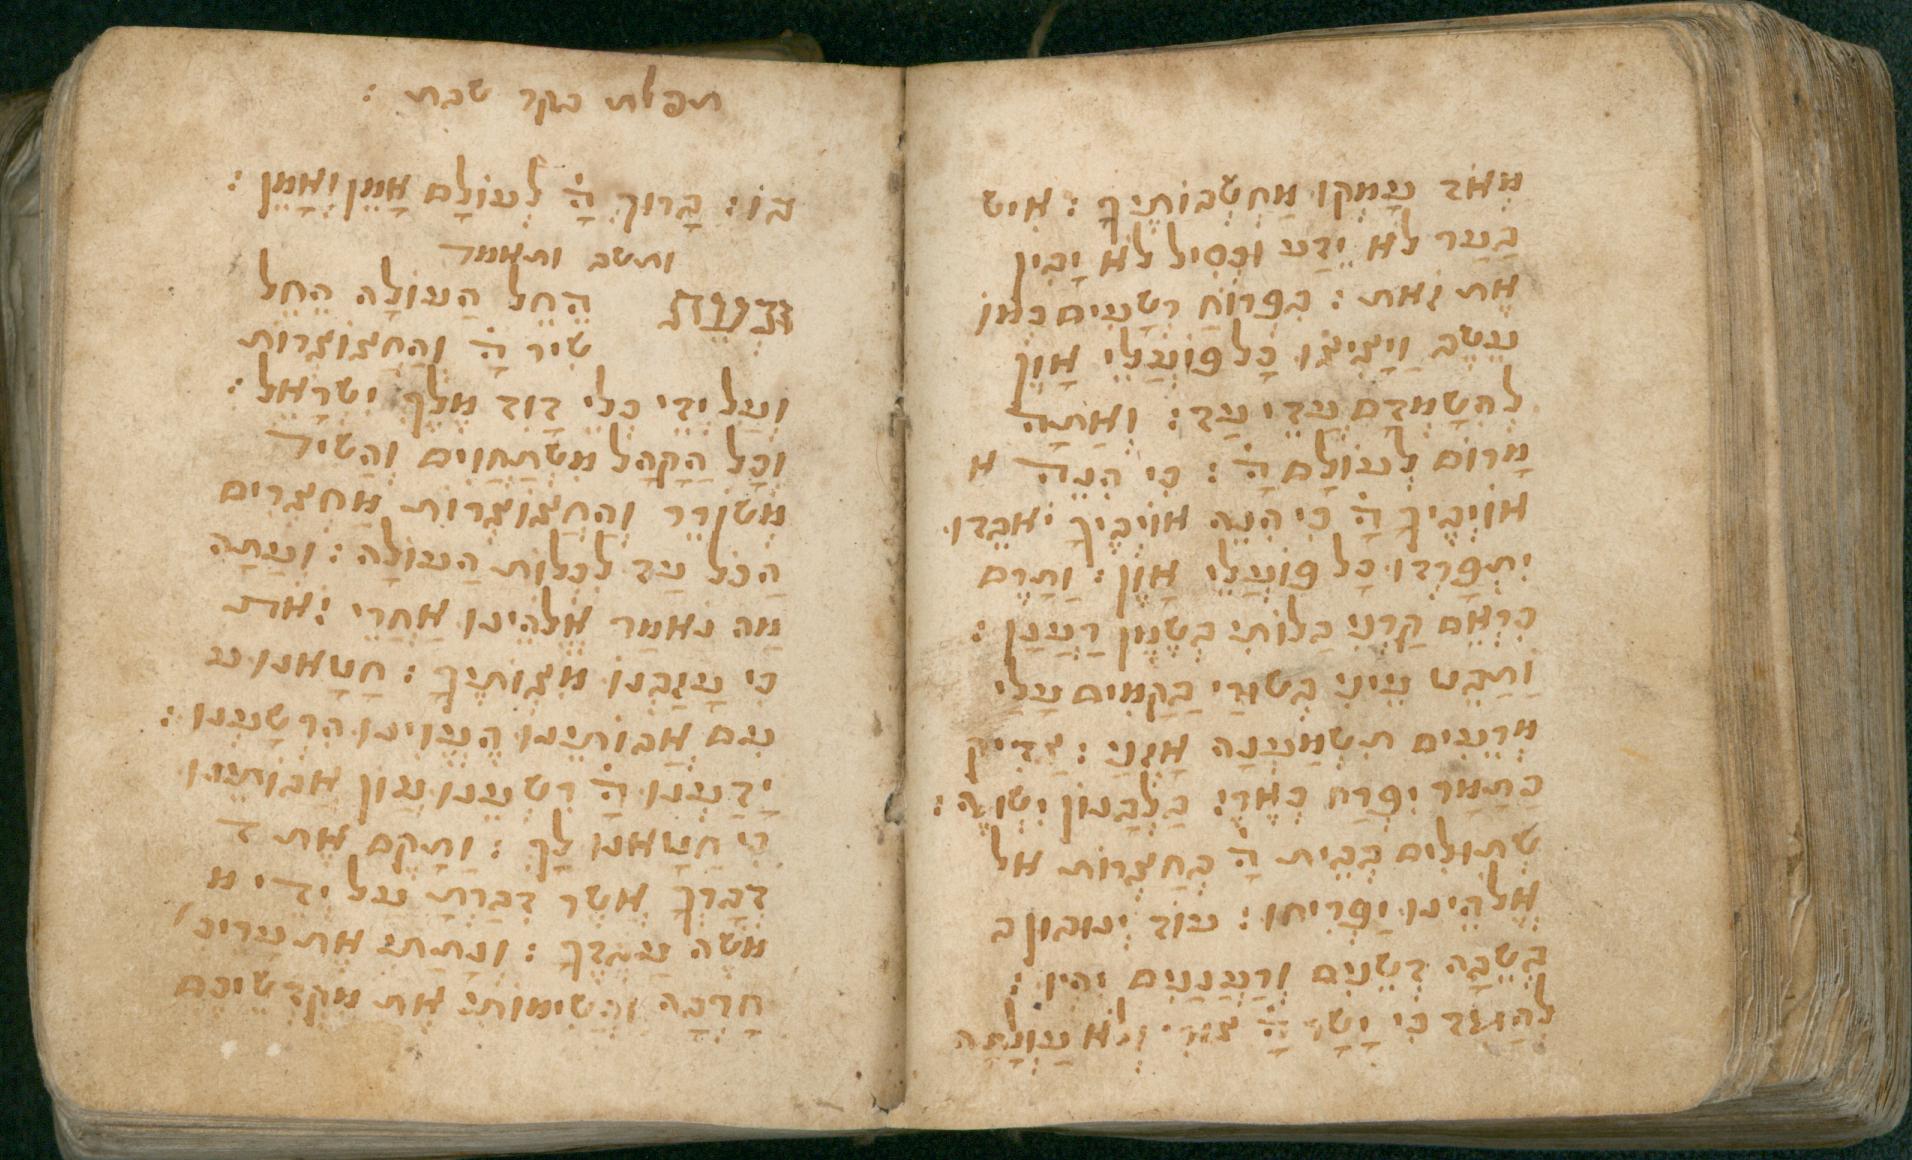 מאד עמקו מחשבותיך : איש
בער לא ידע וכסיל לא יבין
את זאת : בפרוח רשעים כמו
עשב ויציצו כל פועלי און
להשמדם עדי עד : ואתה
מרום לעולם ה : כי הנה א
אויביך ה כי הנה אויביך יאבדו
יתפרדו כל פועלי און : ותרם
כראם קרני בלותי בשמן רענן :
ותבט עיני בשורי בקמים עלי
מרעים תשמענה אזני : צדיק
כתמר יפרח כארז בלבנון ישגה :
שתולים בבית ה בחצרות אל
אלהינו יפריחו : עוד ינובון ב
בשבה דשנים ורעננים יהיו :
להגיד כי ישר ה צורי ולא עולתה
תפלת בקר שבת :
בו : ברוך ה לעולם אמן ואמן :
ותשב ותאמר
ובעת החל העולה החל
שיר ה והחצוצרות
ועל ידי כלי דוד מלך ישראל :
וכל הקהל משתחוים והשיר
משורר והחצוצרות מחצרים
הכל עד לכלות העולה : ועתה
מה נאמר אלהינו אחרי זאת
כי עזבנו מצותיך : חטאנו ע
עם אבותינו העוינו הרשענו :
ידענו ה רשענו עון אבותינו
כי חטאנו לך : ותקם את ד
דברך אשר דברת על ידי מ
משה עבדך : ונתתי את עריכ
חרבה והשימותי את מקדשיכם